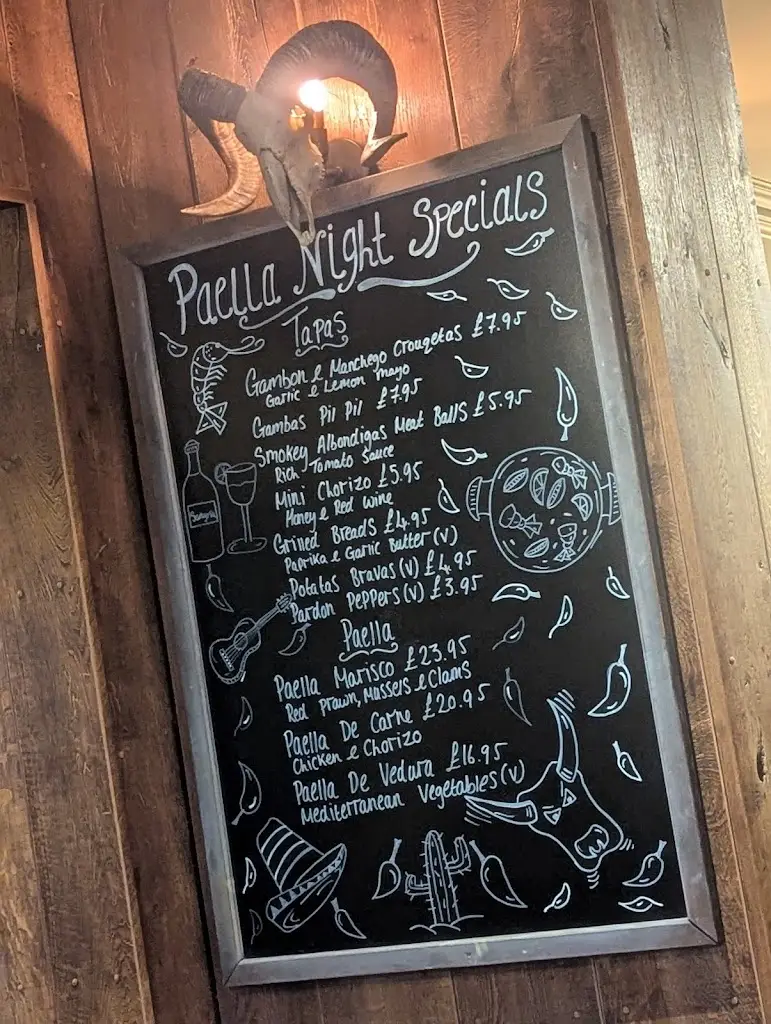 Paella Night Specials
Tapas
Gambon & Manchego Crouqetas £7.95
Garlic & Lemon Mayo
Gambas Pil Pil £7.95
Smokey Albondigas Meat Balls £5.95
Rich Tomato Sauce
Mini Chorizo £5.95
Honey & Red Wine
Grilled Breads £4.95
Paprika & Garlic Butter (V)
Potatas Bravas (V) £4.95
Pardon Peppers (V) £3.95
Sangria
Paella
Paella Marisco £23.95
Red Prawn, Mussels & Clams
Paella De Carne £20.95
Chicken & Chorizo
Paella De Vedura £16.95
Mediterranean Vegetables (V)